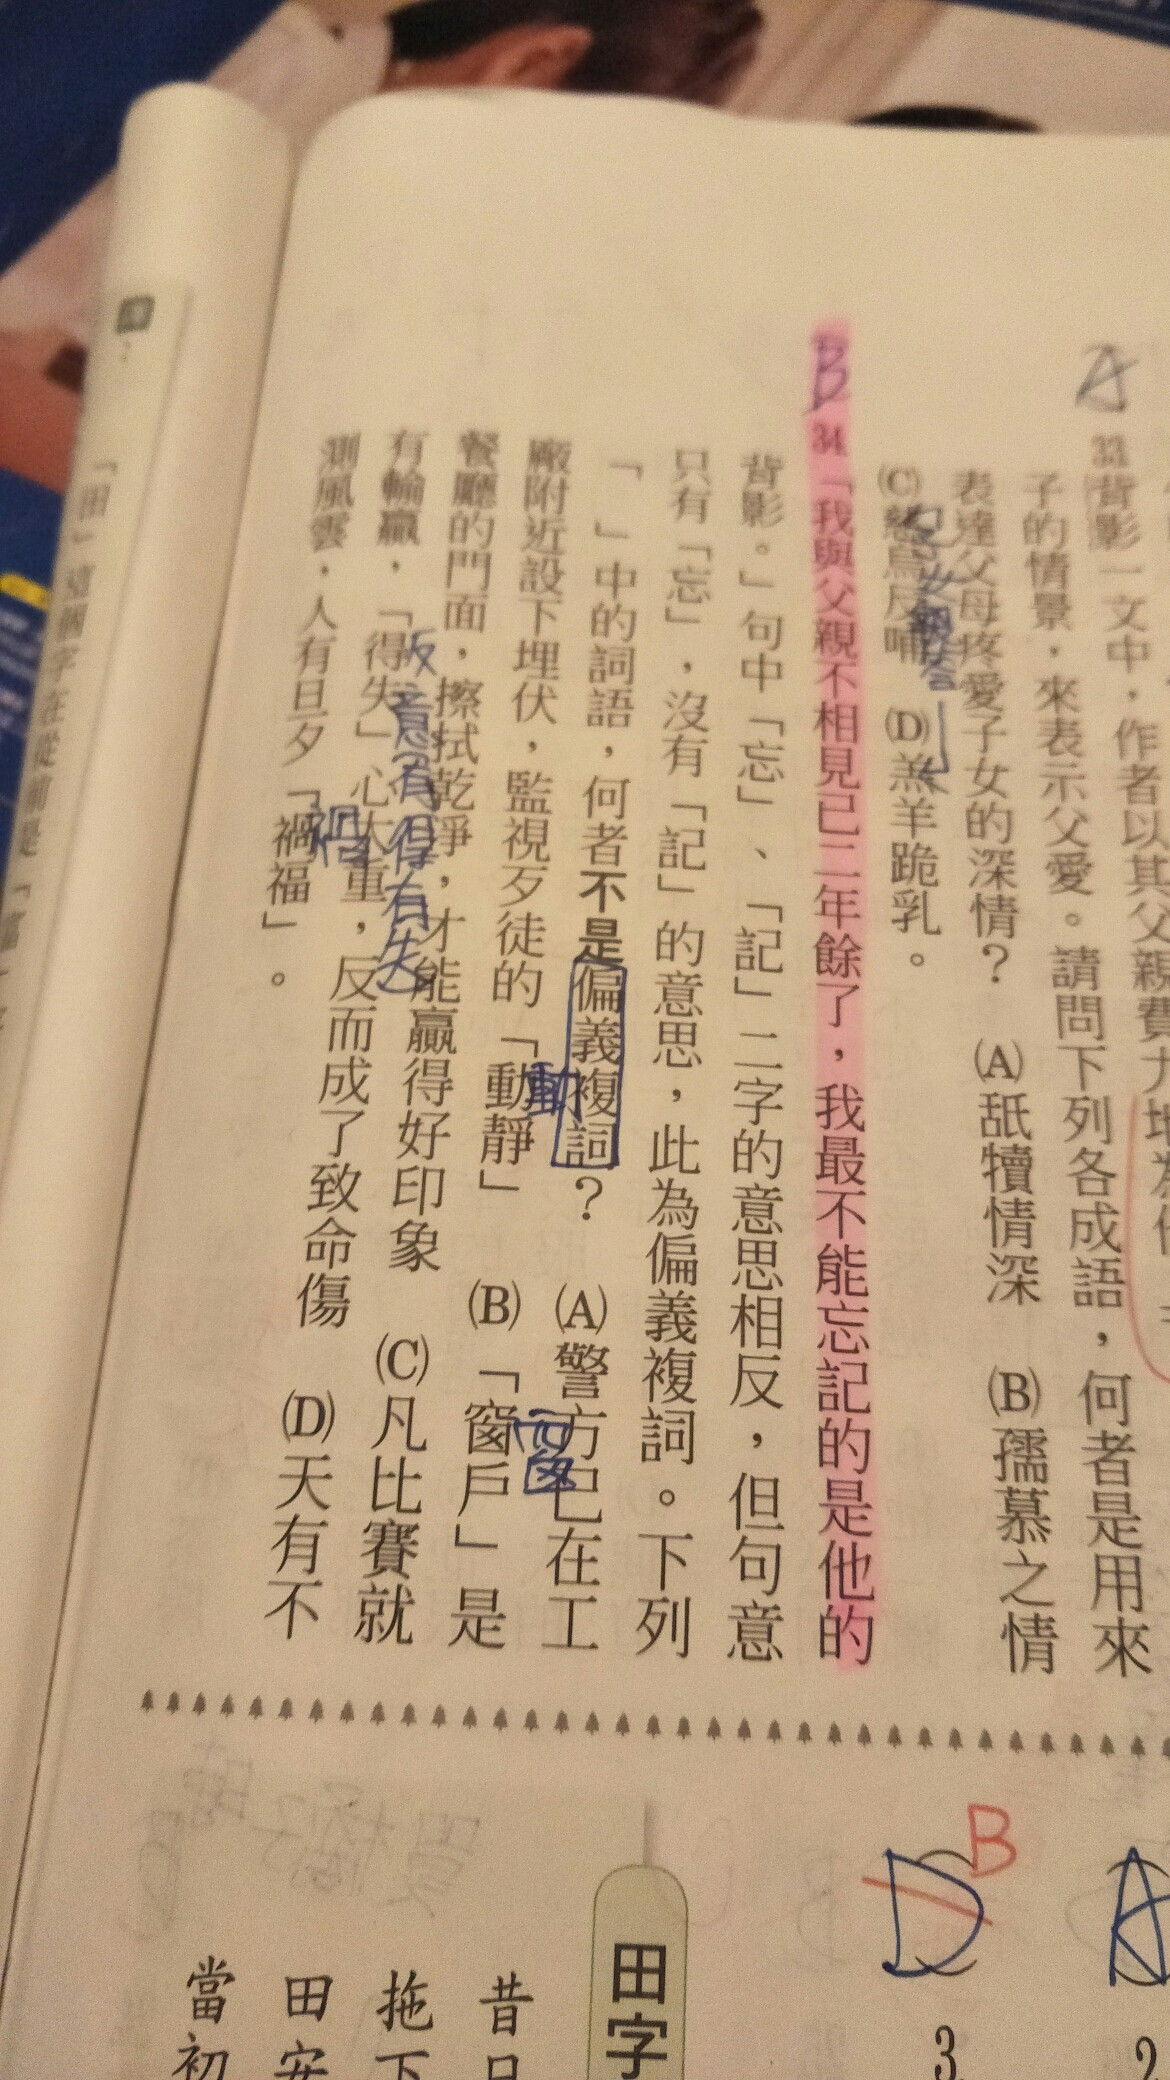 A
33背影一文中，作者以其父親費力地為
子的情景，來表示父愛。請問下列各成語，何者是用來
表達父母疼愛子女的深情？　(A)舐犢情深　(B)孺慕之情
(C)慈烏反哺　(D)羔羊跪乳。
B
34「我與父親不相見已二年餘了，我最不能忘記的是他的
背影。」句中「忘」、「記」二字的意思相反，但句意
只有「忘」，沒有「記」的意思，此為偏義複詞。下列
「　」中的詞語，何者不是偏義複詞？　(A)警方已在工
廠附近設下埋伏，監視歹徒的「動靜」　(B)「窗戶」是
動
窗
餐廳的門面，擦拭乾淨，才能贏得好印象　(C)凡比賽就
有輸贏，「得失」心太重，反而成了致命傷　(D)天有不
意有得有失
測風雲，人有旦夕「禍福」。
禍
「田」這個字在從前是「富
A
2
D
B
3
田字
昔日
拖下
田安
當初